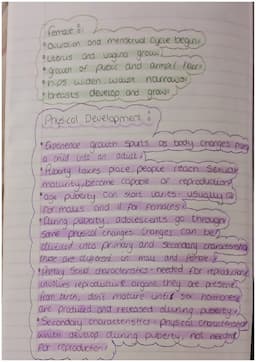 Female:
• ovulation and menstrual cycle begin
• uterus and vagina grow
• growth of pubic and armpit hair
• hips widen waist narrows
• breasts develop and grow
Physical Development:
• Experience growth spurts as body changes from
a child into an adult
• Puberty takes place people reach sexual
maturity, become capable of reproduction
• age puberty can start varies usually
for males and 11 for females
• During puberty, adolescents go through
some physical changes. Changes can be
divided into primary and secondary characteristics
that are different in male and female
• characteristics - needed for reproduction
involves reproductive organs they are present
from birth, don't mature until sex hormones
are produced and released during puberty
• Secondary characteristics - physical characteristics
which develop during puberty, not needed
for reproduction